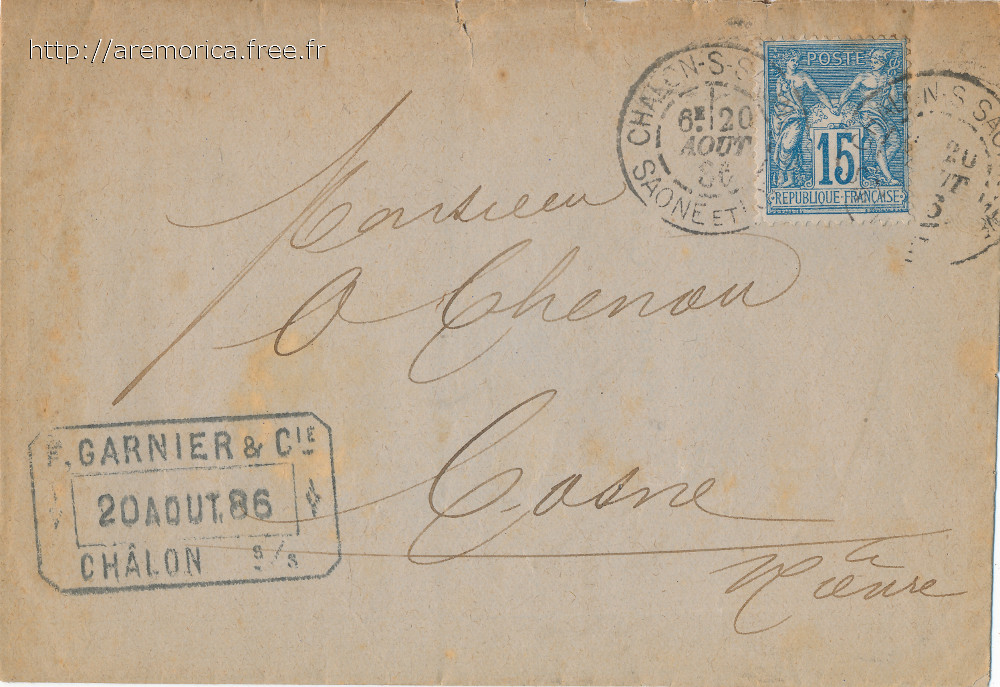 http://aremorica.free.fr
CHALON-S-S
6E 20
AOUT
86
SAONE ET
POSTE
15
REPUBLIQUE FRANÇAISE
20
Monsieur
A Chenou
Cosne
Nièvre
F. GARNIER & CIE
20 AOUT. 86
CHÂLON S/S